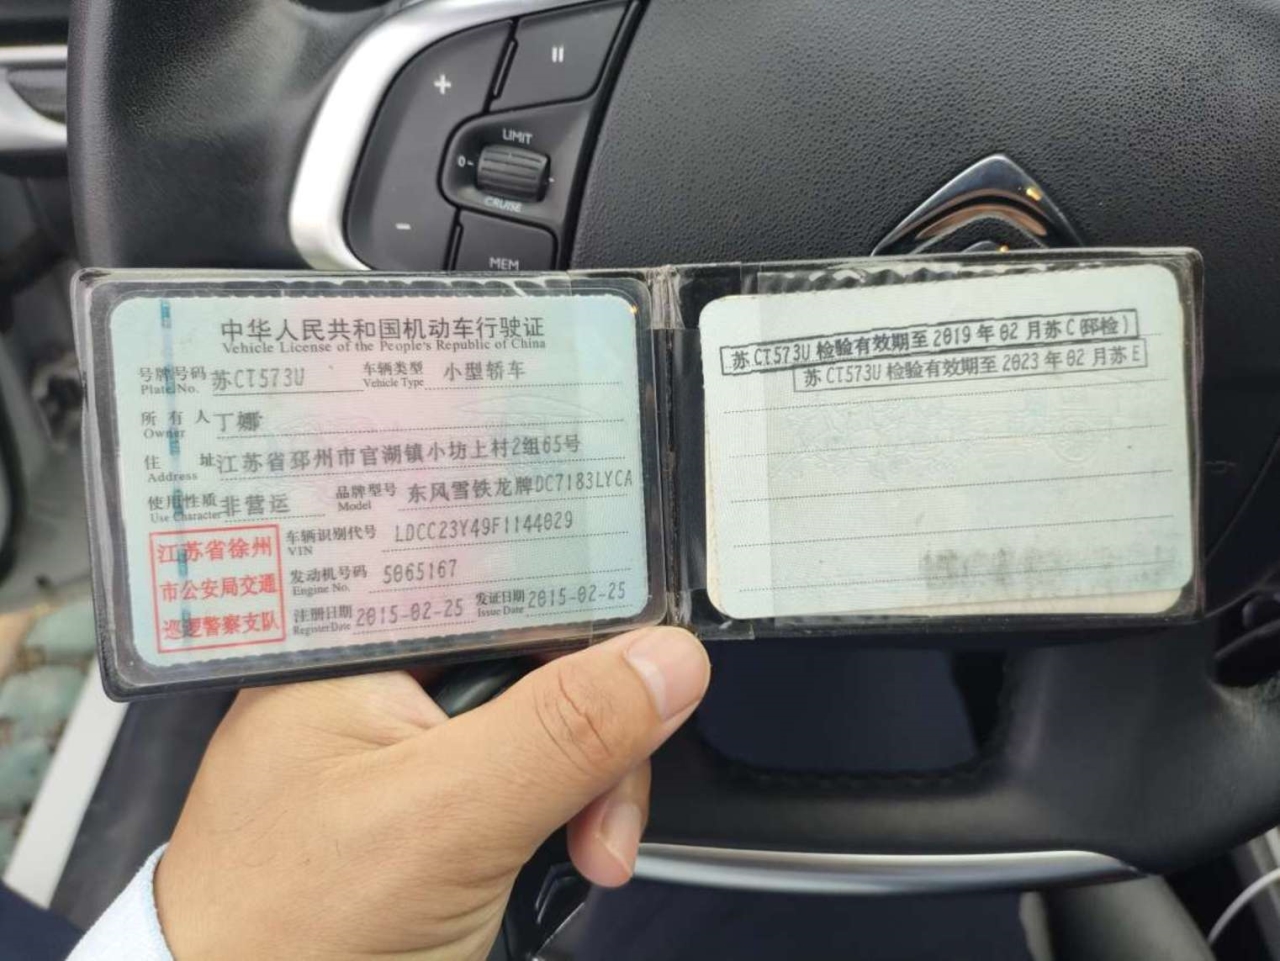 +
II
LIMIT
0-
CRUISE
-
MEM
中华人民共和国机动车行驶证
Vehicle License of the People's Republic of China
号牌号码 苏CT573U 车辆类型 小型轿车
Plate No. Vehicle Type
所有人 丁娜
Owner
住址 江苏省邳州市官湖镇小坊上村2组65号
Address
使用性质 非营运 品牌型号 东风雪铁龙牌DC7183LYCA
Use Character Model
车辆识别代号 LDCC23Y49F1144029
VIN
发动机号码 5065167
Engine No.
注册日期 2015-02-25 发证日期 2015-02-25
Register Date Issue Date
江苏省徐州
市公安局交通
巡逻警察支队
苏CT573U 检验有效期至 2019 年 02 月苏 C(邳检)
苏 CT573U 检验有效期至 2023 年 02 月苏 E